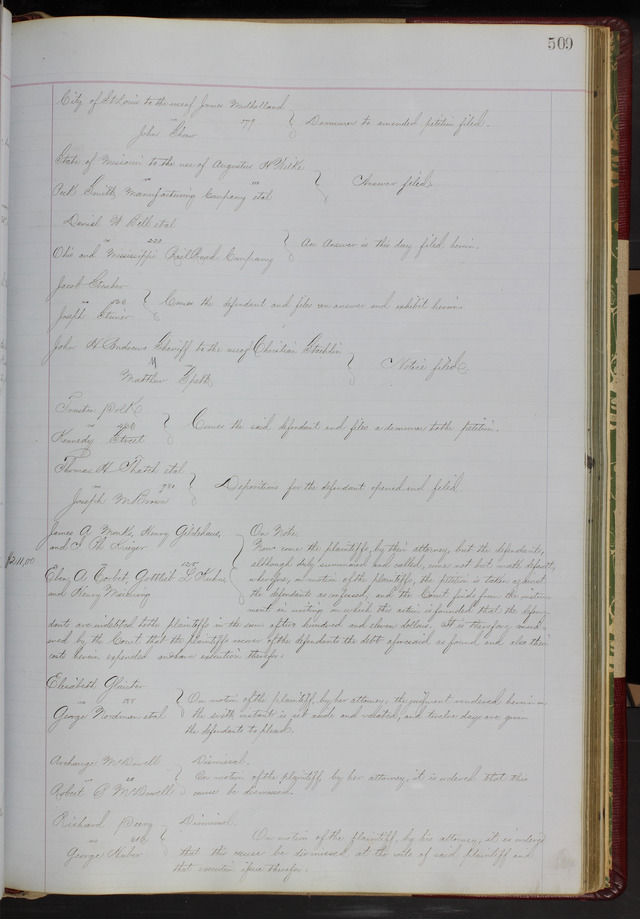 509
City of St Louis to the use of James Mulholland
vs 579 Demurrer to amended petition filed.
John Shaw
State of Missouri to the use of Augustus H Wilke
vs Answer filed.
Smith Manufacturing Company etal
Daniel W Bell etal
vs 222 An Answer is this day filed herein.
Ohio and Mississippi Rail Road Company
Jacob
vs Comes the defendant and files an answer and exhibit herein.
Joseph Steiner
John H Andrews Sheriff to the use of Christian
vs Notice filed.
Matthew
Trusten Polk
vs Comes the said defendant and files a demurrer to the petition.
Kennedy Street
Thomas H Thatch etal
vs 980 Depositions for the defendant opened and filed.
Joseph McBrown
James A Monks, Henry Gildehaus, On Note.
and Krieger Now come the plaintiffs, by their attorney, but the defendants,
$211,00 although duly summoned and called, come not but made default,
vs wherefore, on motion of the plaintiffs, the petition is taken against
Eben A Corbet, Gottlieb L Kuhn, the defendants as confessed, and the Court finds from the instru-
and Henry ment in writing on which the action is founded that the defen-
dants are indebted to the plaintiffs in the sum of two hundred and eleven dollars. It is therefore consid-
ered by the Court that the plaintiffs recover of the defendants the debt aforesaid as found, and also their
costs herein expended and have execution therefor.
Elizabeth
vs On motion of the plaintiff, by her attorney, the judgment rendered herein on
George Nordman etal the sixth instant is set aside and vacated, and twelve days are given
the defendants to plead.
Archange McDowell Dismissal.
vs 20 On motion of the plaintiff, by her attorney, it is ordered that this
Robert P McDowell cause be dismissed.
Richard Dismissal.
vs On motion of the plaintiff, by his attorney, it is ordered
George Huber that this cause be dismissed at the costs of said plaintiff and
that execution issue therefor.